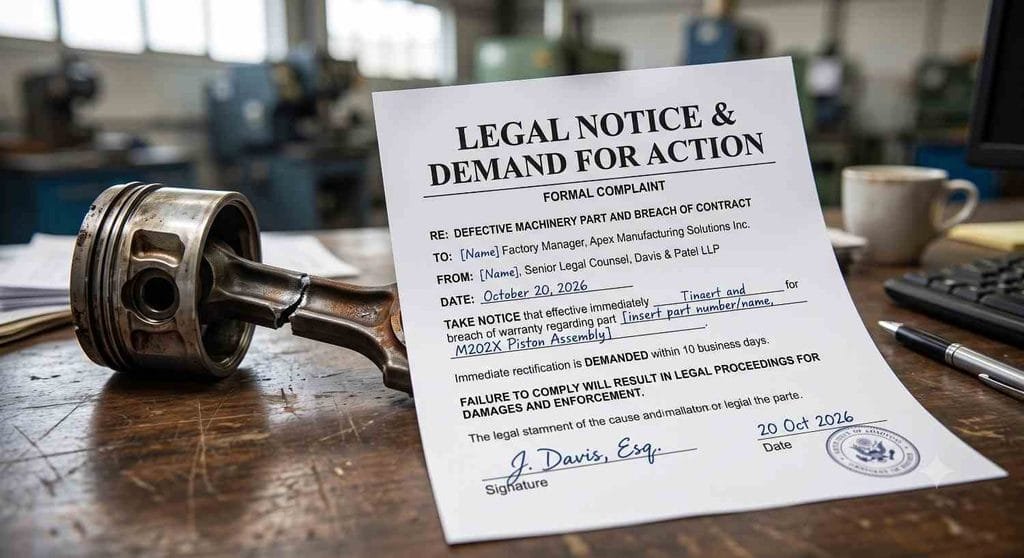 LEGAL NOTICE &
DEMAND FOR ACTION
FORMAL COMPLAINT
RE: DEFECTIVE MACHINERY PART AND BREACH OF CONTRACT
TO: [Name] Factory Manager, Apex Manufacturing Solutions Inc.
FROM: [Name], Senior Legal Counsel, Davis & Patel LLP
DATE: October 20, 2026
TAKE NOTICE that effective immediately Tinaert and for
breach of warranty regarding part [insert part number/name,
M202X Piston Assembly].
Immediate rectification is DEMANDED within 10 business days.
FAILURE TO COMPLY WILL RESULT IN LEGAL PROCEEDINGS FOR
DAMAGES AND ENFORCEMENT.
The legal stamnent of the cause and/mallatun or legial the parte.
J. Davis, Esq.
Signature
20 Oct 2026
Date